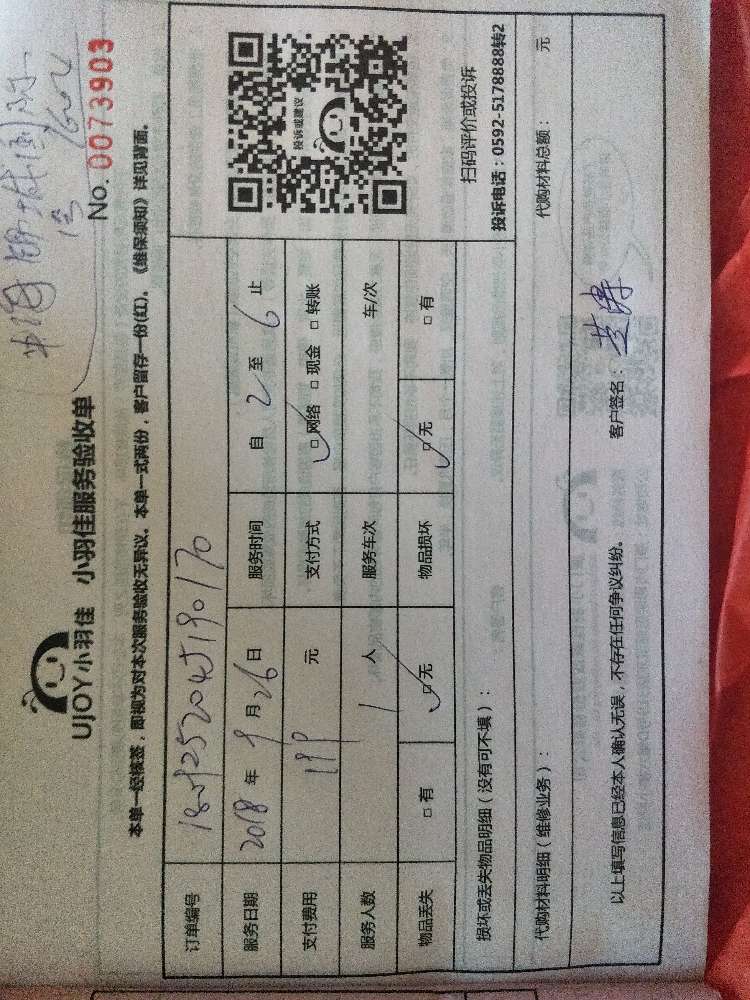 UJOY小羽佳 小羽佳服务验收单
No. 0073903
本单一经核签，即视为对本次服务验收无异议。本单一式两份，客户留存一份(红)。《维保须知》详见背面。
订单编号
服务日期 2018 年 9 月 26 日 服务时间 自 2 至 6 止
支付费用 元 支付方式 □ 网络 □ 现金 □ 转账
服务人数 1 人 服务车次 车/次
物品丢失 □ 有 □ 无 物品损坏 □ 无 □ 有
投诉或建议
扫码评价或投诉
投诉电话：0592-5178888转2
损坏或丢失物品明细（没有可不填）：
代购材料明细（维修业务）： 代购材料总额： 元
以上填写信息已经本人确认无误，不存在任何争议纠纷。 客户签名：